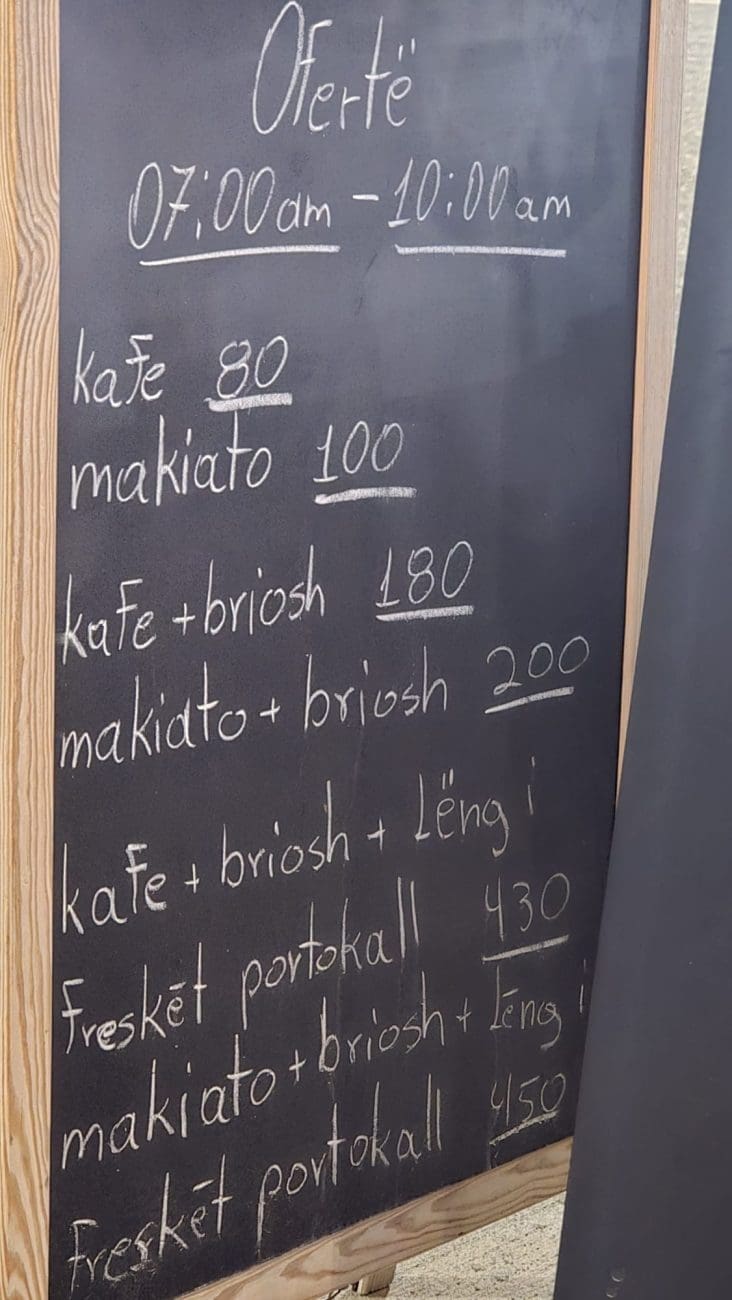 Ofertë
07:00am - 10:00am
kafe 80
makiato 100
kafe + briosh 180
makiato + briosh 200
kafe + briosh + Lëng i
Freskët portokall 430
makiato + briosh + Lëng i
Freskët portokall 450